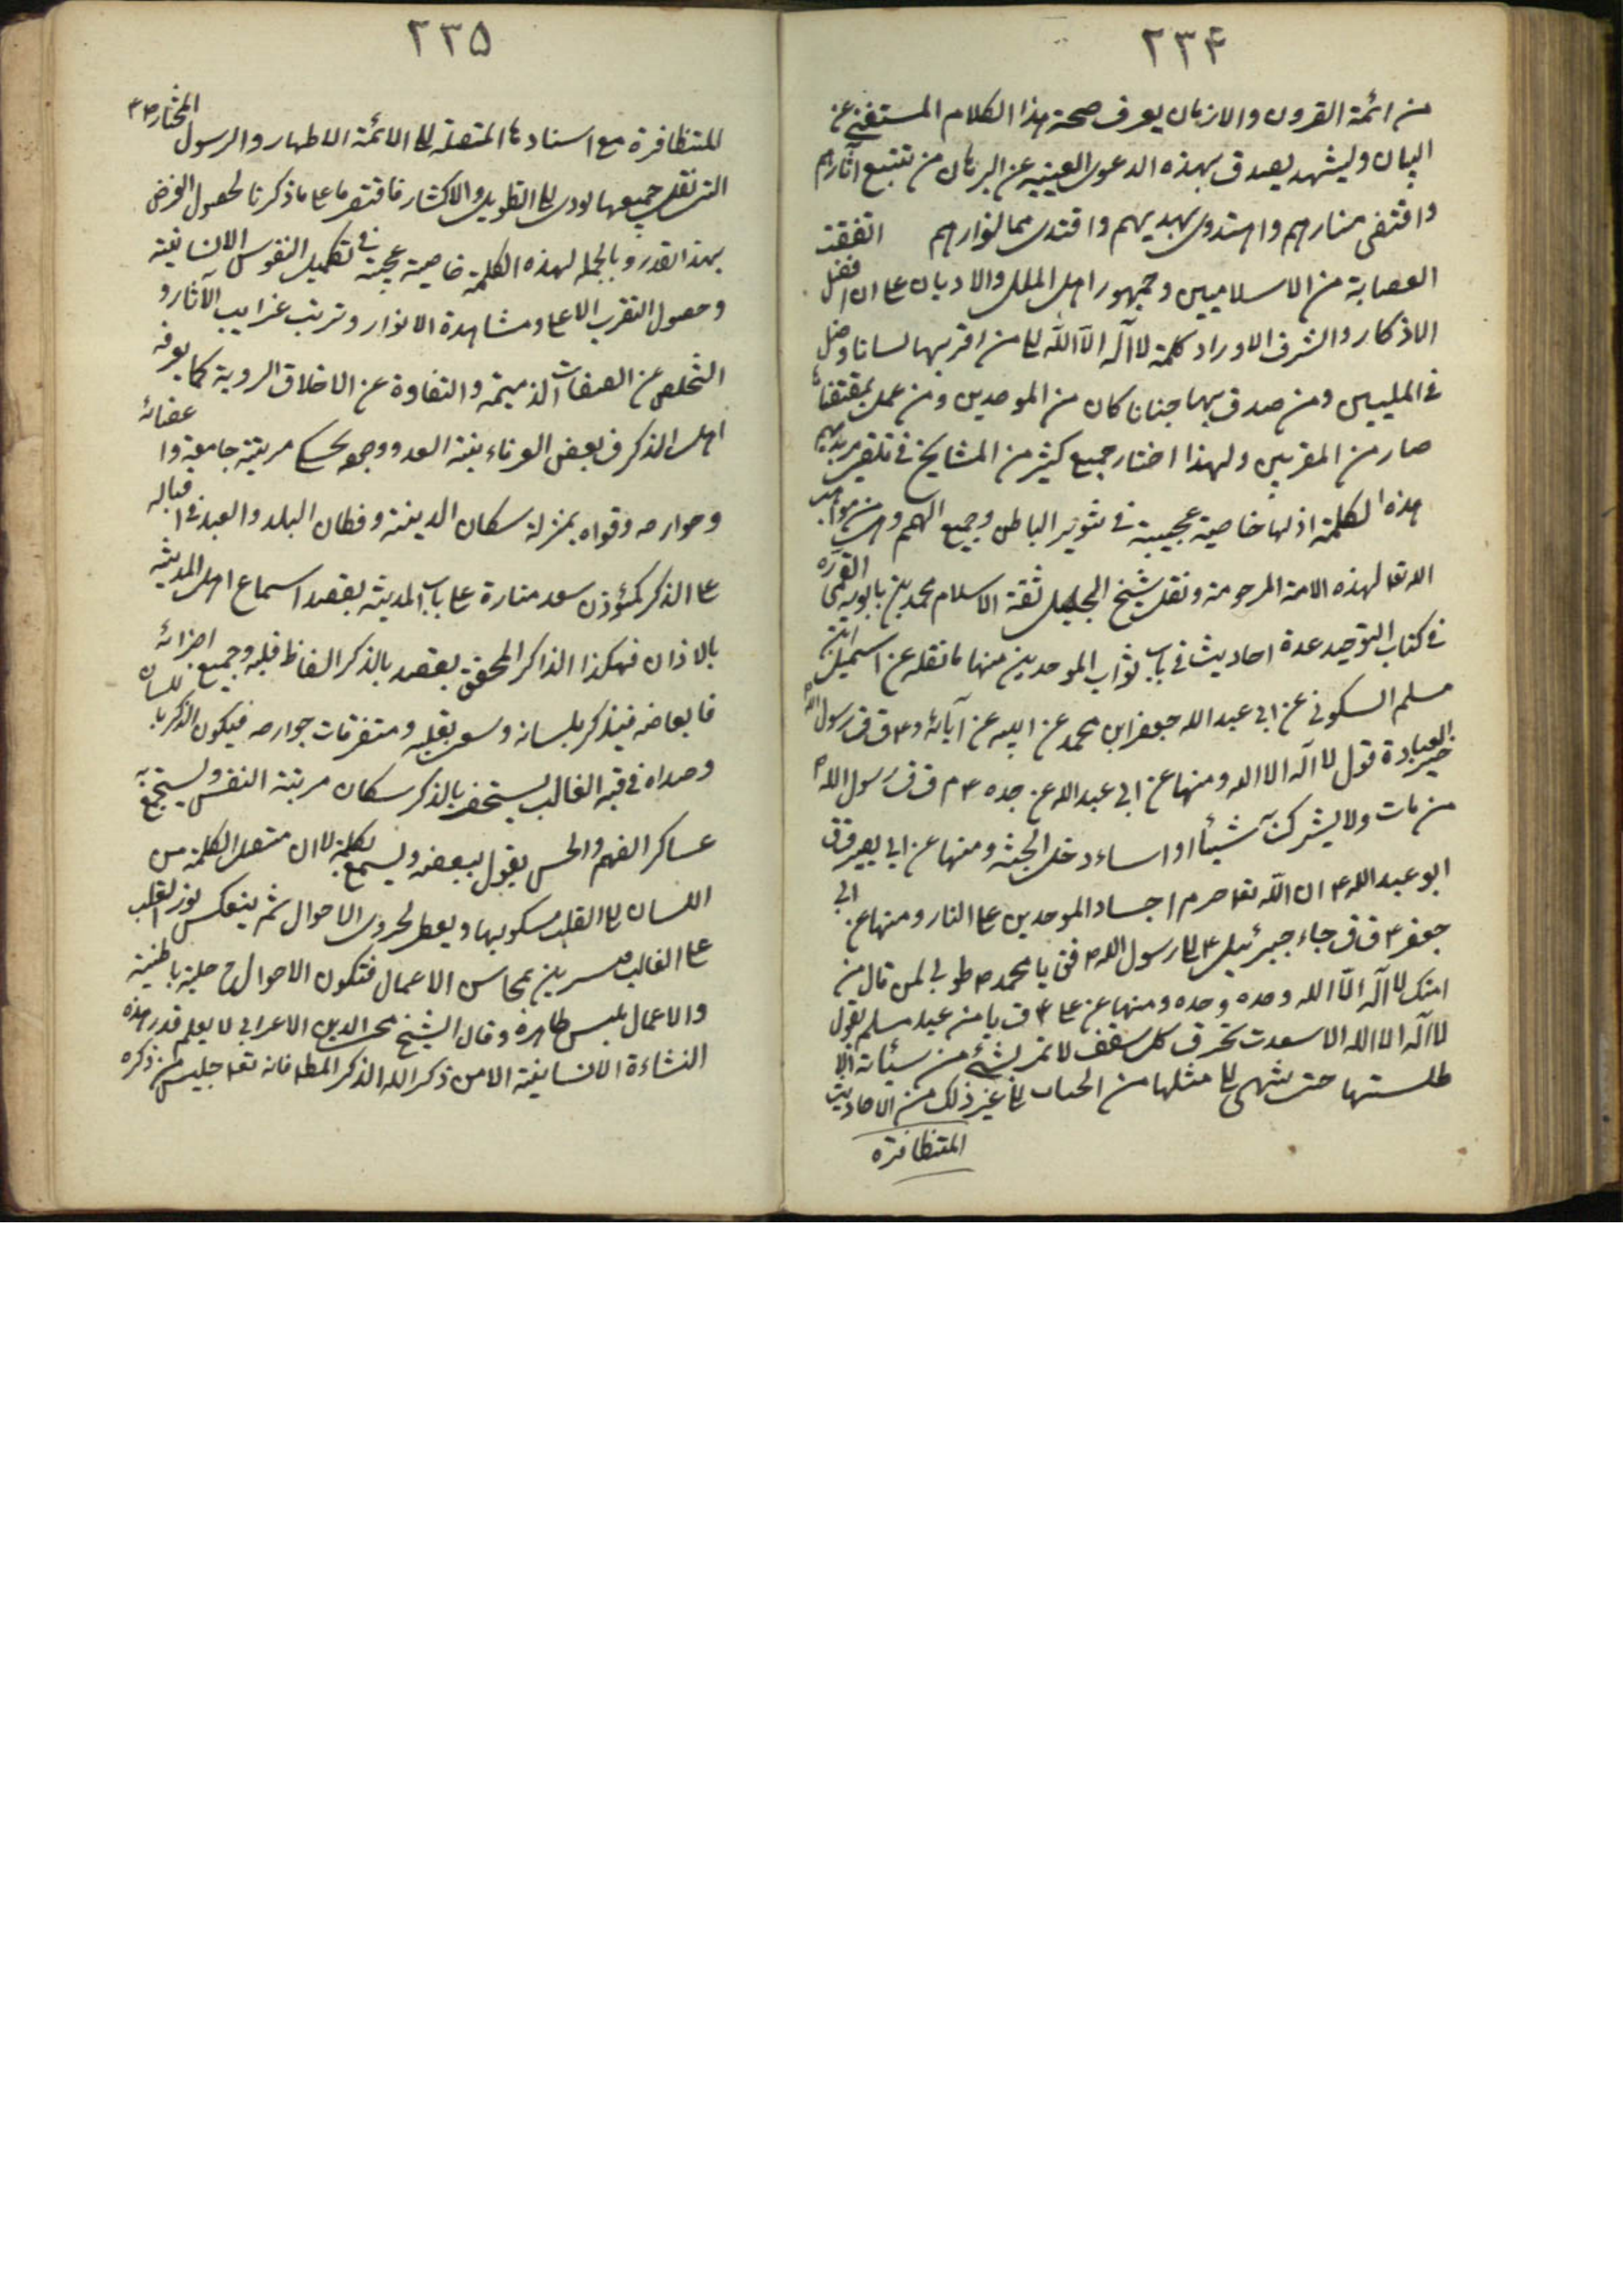 ٢٣۴
من ائمة القرون والازمان يعرف صحة هذا الكلام المستغنى عن
البيان وليشهد يصدق بهذه الدعوى الغنية عن البرهان من تتبع آثارهم
واقتفى منارهم واهتدى بهديهم واقتدى بمالنوارهم اتفقت
العصابة من الاسلاميين وجمهور اهل الملل والاديان على ان افضل
الاذكار والشرف الاوراد كلمة لا آله الا الله من اقر بها لسانا دخل
فى المليين ومن صدق بها جنانا كان من الموحدين ومن عمل بمقتضاها
صار من المقربين ولهذا اختار جميع كثير من المشايخ فى تلقين مريديهم
هذه الكلمة اذ لها خاصية عجيبة فى تنوير الباطن وجميع الهم وهى من مواهب
الله تعا لهذه الامة المرحومة ونقل شيخ الجليل ثقة الاسلام محمد بن بابويه القمى قره
فى كتاب التوحيد عدة احاديث فى باب ثواب الموحدين منها ما نقله عن اسمعيل ابن
مسلم السكونى عن ابى عبد الله جعفر ابن محمد عن ابيه عن آبائه ع ق ق رسول الله ص
خير العبادة قول لا آله الا الله ومنها عن ابى عبد الله عن جده ع م ق ق رسول الله ص
من مات ولا يشرك شيئا او اساء دخل الجنة ومنها عن ابى بصير ق ق
ابو عبد الله ع ان الله تعا حرم اجساد الموحدين على النار ومنها عن ابى
جعفر ع ق ق جاء جبرئيل ع الى رسول الله ص فق يا محمد ص طوبى لمن قال من
امتك لا آله الا الله وحده وحده ومنها عن ع ق يا من عبد مسلم يقول
لا آله الا الله الا سعدت تخرق كل سقف لا تمر بشئ من سيئاته الا
طلستها حتى ينتهى الى مثلها من الحساب الى غير ذلك من الاحاديث
المتظافرة
٢٣۵
للمتظافرة مع اسنادها المتصلة الى الائمة الاطهار والرسول المختار ص ع
التى نقل جميعها يودى الى التطويل والاكثار فاقتصرنا على ما ذكرنا لحصول الغرض
بهذا القدر وبالجمله لهذه الكلمة خاصية عجيبة فى تكميل النفوس الانسانية
وحصول التقرب الاعلى ومشاهدة الانوار وترتب غرايب الآثار و
التخلص عن الصفات الذميمة والنقاوة عن الاخلاق الردية كما يعرفه
اهل الذكر ق بعض العرفاء بنية العبد ووجوده كلى مدينة جامعة وا عضائه
وجوارحه وقواه بمنزلة سكان المدينة وقطان البلد والعبد فى اقباله
على الذكر كمؤذن سعد منارة على باب المدينة يقصد اسماع اهل المدينة
بالاذان فهكذا الذاكر المحقق يقصد بالذكر الفاظ قلبه وجميع اجزائه
فابعاضه فيذكر بلسانه وسعى بقلبه ومتفرقات جوارحه فيكون الذكر باللسان
وصداه فى قبة القالب يستحضر بالذكر سكان مدينة النفس وليستجمع به
عساكر الفهم والحس يقول ببعضه ويسمع بكله الى ان منتقل الكلمة من
اللسان الى القلب فيكو بها ويعطى لجدوى الاحوال ثم ينعكس نور القلب
على القالب فيزين بمحاسن الاعمال فتكون الاحوال ح حلية باطنية
والاعمال يلبس ظاهره وقال الشيخ محى الدين الاعرابى لا يعلم قدر هذه
النشاءة الانسانية الا من ذكر الله الذكر المط فانه تعا جليس من ذكره